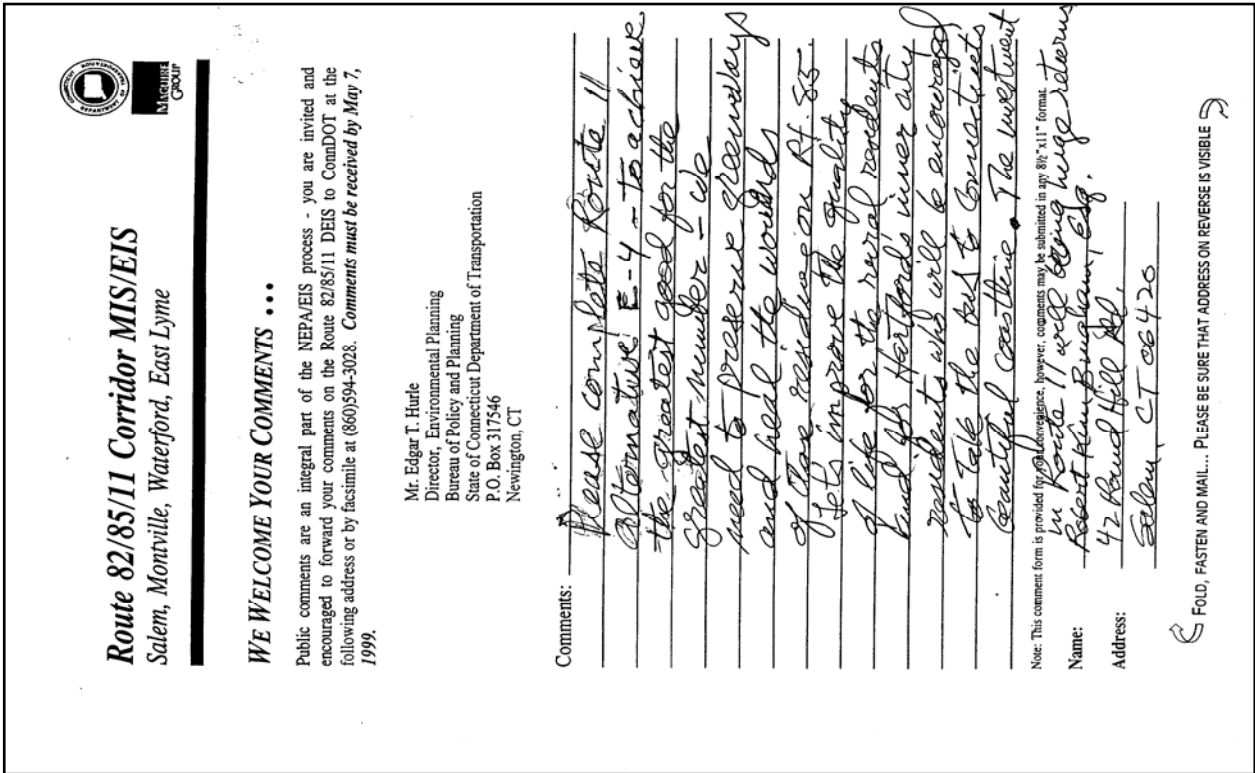 Route 82/85/11 Corridor MIS/EIS
Salem, Montville, Waterford, East Lyme
CONNECTICUT
DEPARTMENT OF
TRANSPORTATION
MAGUIRE
GROUP
WE WELCOME YOUR COMMENTS ...
Public comments are an integral part of the NEPA/EIS process - you are invited and
encouraged to forward your comments on the Route 82/85/11 DEIS to ConnDOT at the
following address or by facsimile at (860)594-3028. Comments must be received by May 7,
1999.
Mr. Edgar T. Hurle
Director, Environmental Planning
Bureau of Policy and Planning
State of Connecticut Department of Transportation
P.O. Box 317546
Newington, CT
Comments: Please complete Route 11
Alternative E-4 - to achieve
the greatest good for the
greatest number - we
need to preserve greenways
and heal the wounds
of those residing on Rt. 85.
Let's improve the quality
of life for the rural residents
and for Hartford's inner city
residents who will be encouraged
to Take the bus to Connecticut's
beautiful coastline. The investment
Note: This comment form is provided for your convenience, however, comments may be submitted in any 8½"x11" format.
in Route 11 will bring huge returns
Name: Robert Kim Bingham, Esq.
Address: 42 Round Hill Rd.
Salem CT 06420
FOLD, FASTEN AND MAIL... PLEASE BE SURE THAT ADDRESS ON REVERSE IS VISIBLE